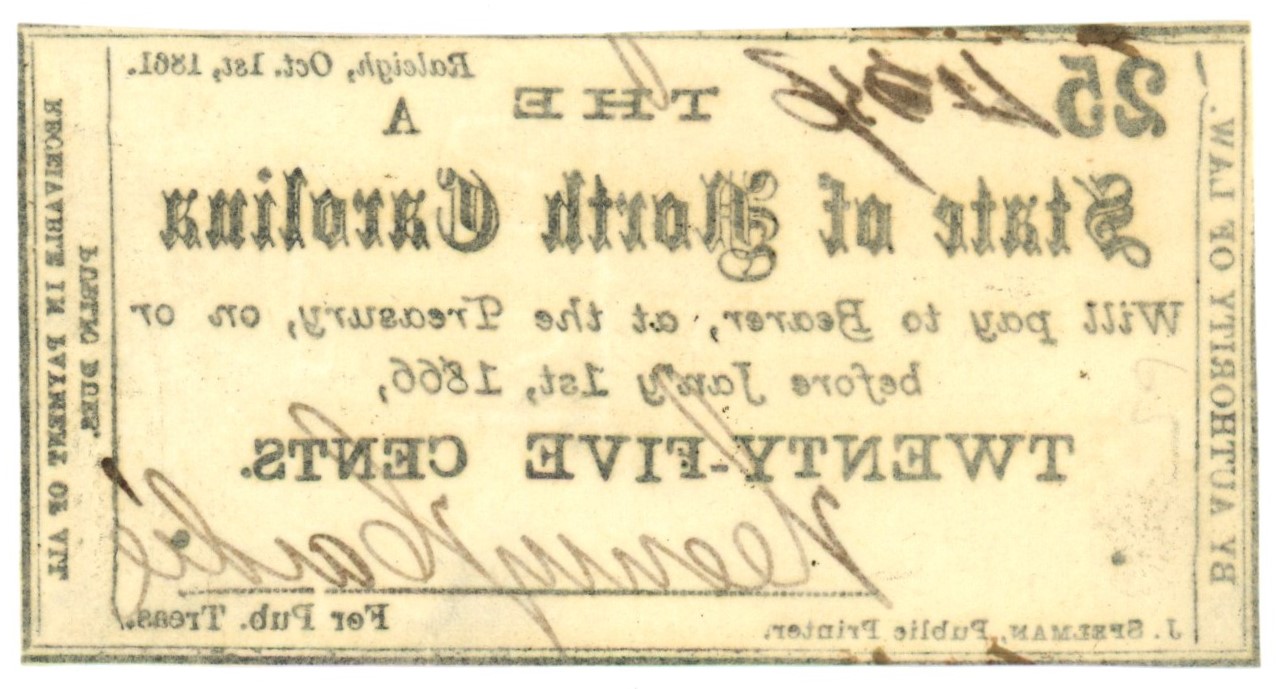 25
Raleigh, Oct. 1st, 1861.
THE
A
State of North Carolina
Will pay to Bearer, at the Treasury, on or
before Jan'y 1st, 1866,
TWENTY-FIVE CENTS.
For Pub. Treas.
J. SPELMAN, Public Printer.
BY AUTHORITY OF LAW.
RECEIVABLE IN PAYMENT OF ALL
PUBLIC DUES.